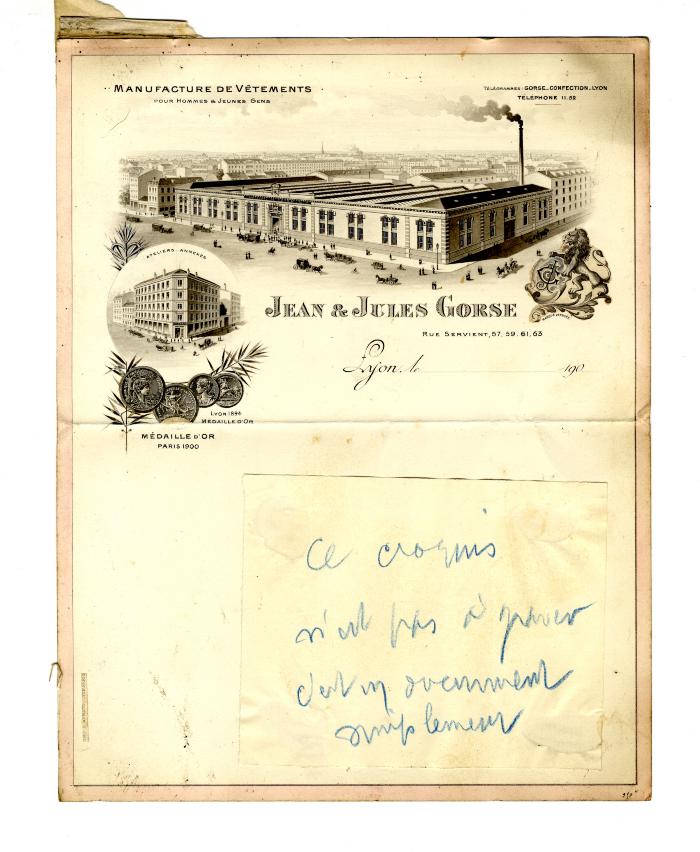 MANUFACTURE DE VÊTEMENTS
POUR HOMMES & JEUNES GENS
TÉLÉGRAMMES: GORSE_CONFECTION_LYON
TÉLÉPHONE 11.52
ATELIERS-ANNEXES
JEAN & JULES GORSE
RUE SERVIENT, 57, 59, 61, 63
Lyon, le 190
LYON 1894
MÉDAILLE D'OR
MÉDAILLE D'OR
PARIS 1900
Ce croquis
n'est pas à graver
c'est un document
simplement